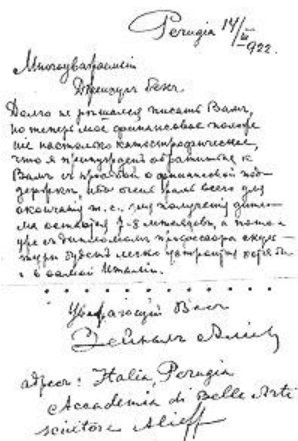 Perugia 14/III 922.
Многоуважаемый
Джейхун бек.
Долго не решался писать Вам,
но теперь мое финансовое положе
ние настолько катастрофическое,
что я принужден обратиться к
Вам с просьбой о финансовой под
держке, ибо очень мало всего для
окончания т. е. для получения дипло
ма остается 7-8 месяцев, а потом
уже с дипломом профессора скульп
туры будет легко устроиться хотя бы
и в самой Италии.
Уважающий Вас
Зейнал Алиев
адрес: Italia, Perugia
Accademia di Belle Arti
scultore Alieff